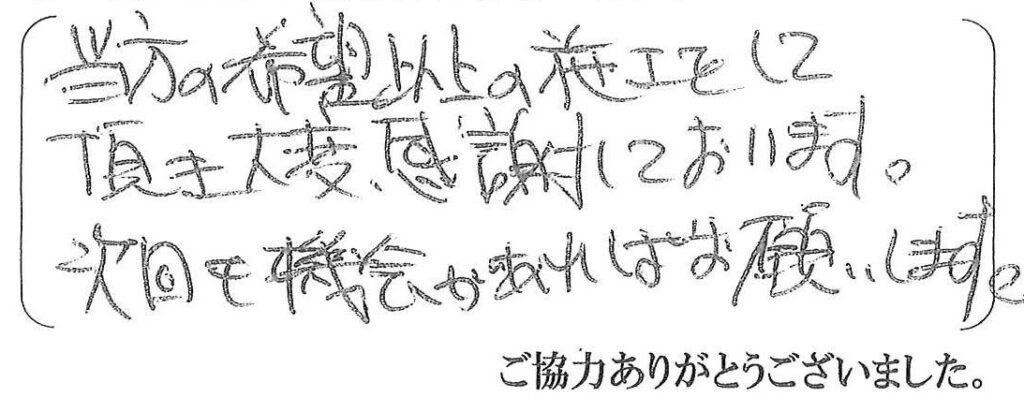 当方の希望以上の施工をして
頂き大変感謝しております。
次回も機会があればお願いします。
ご協力ありがとうございました。